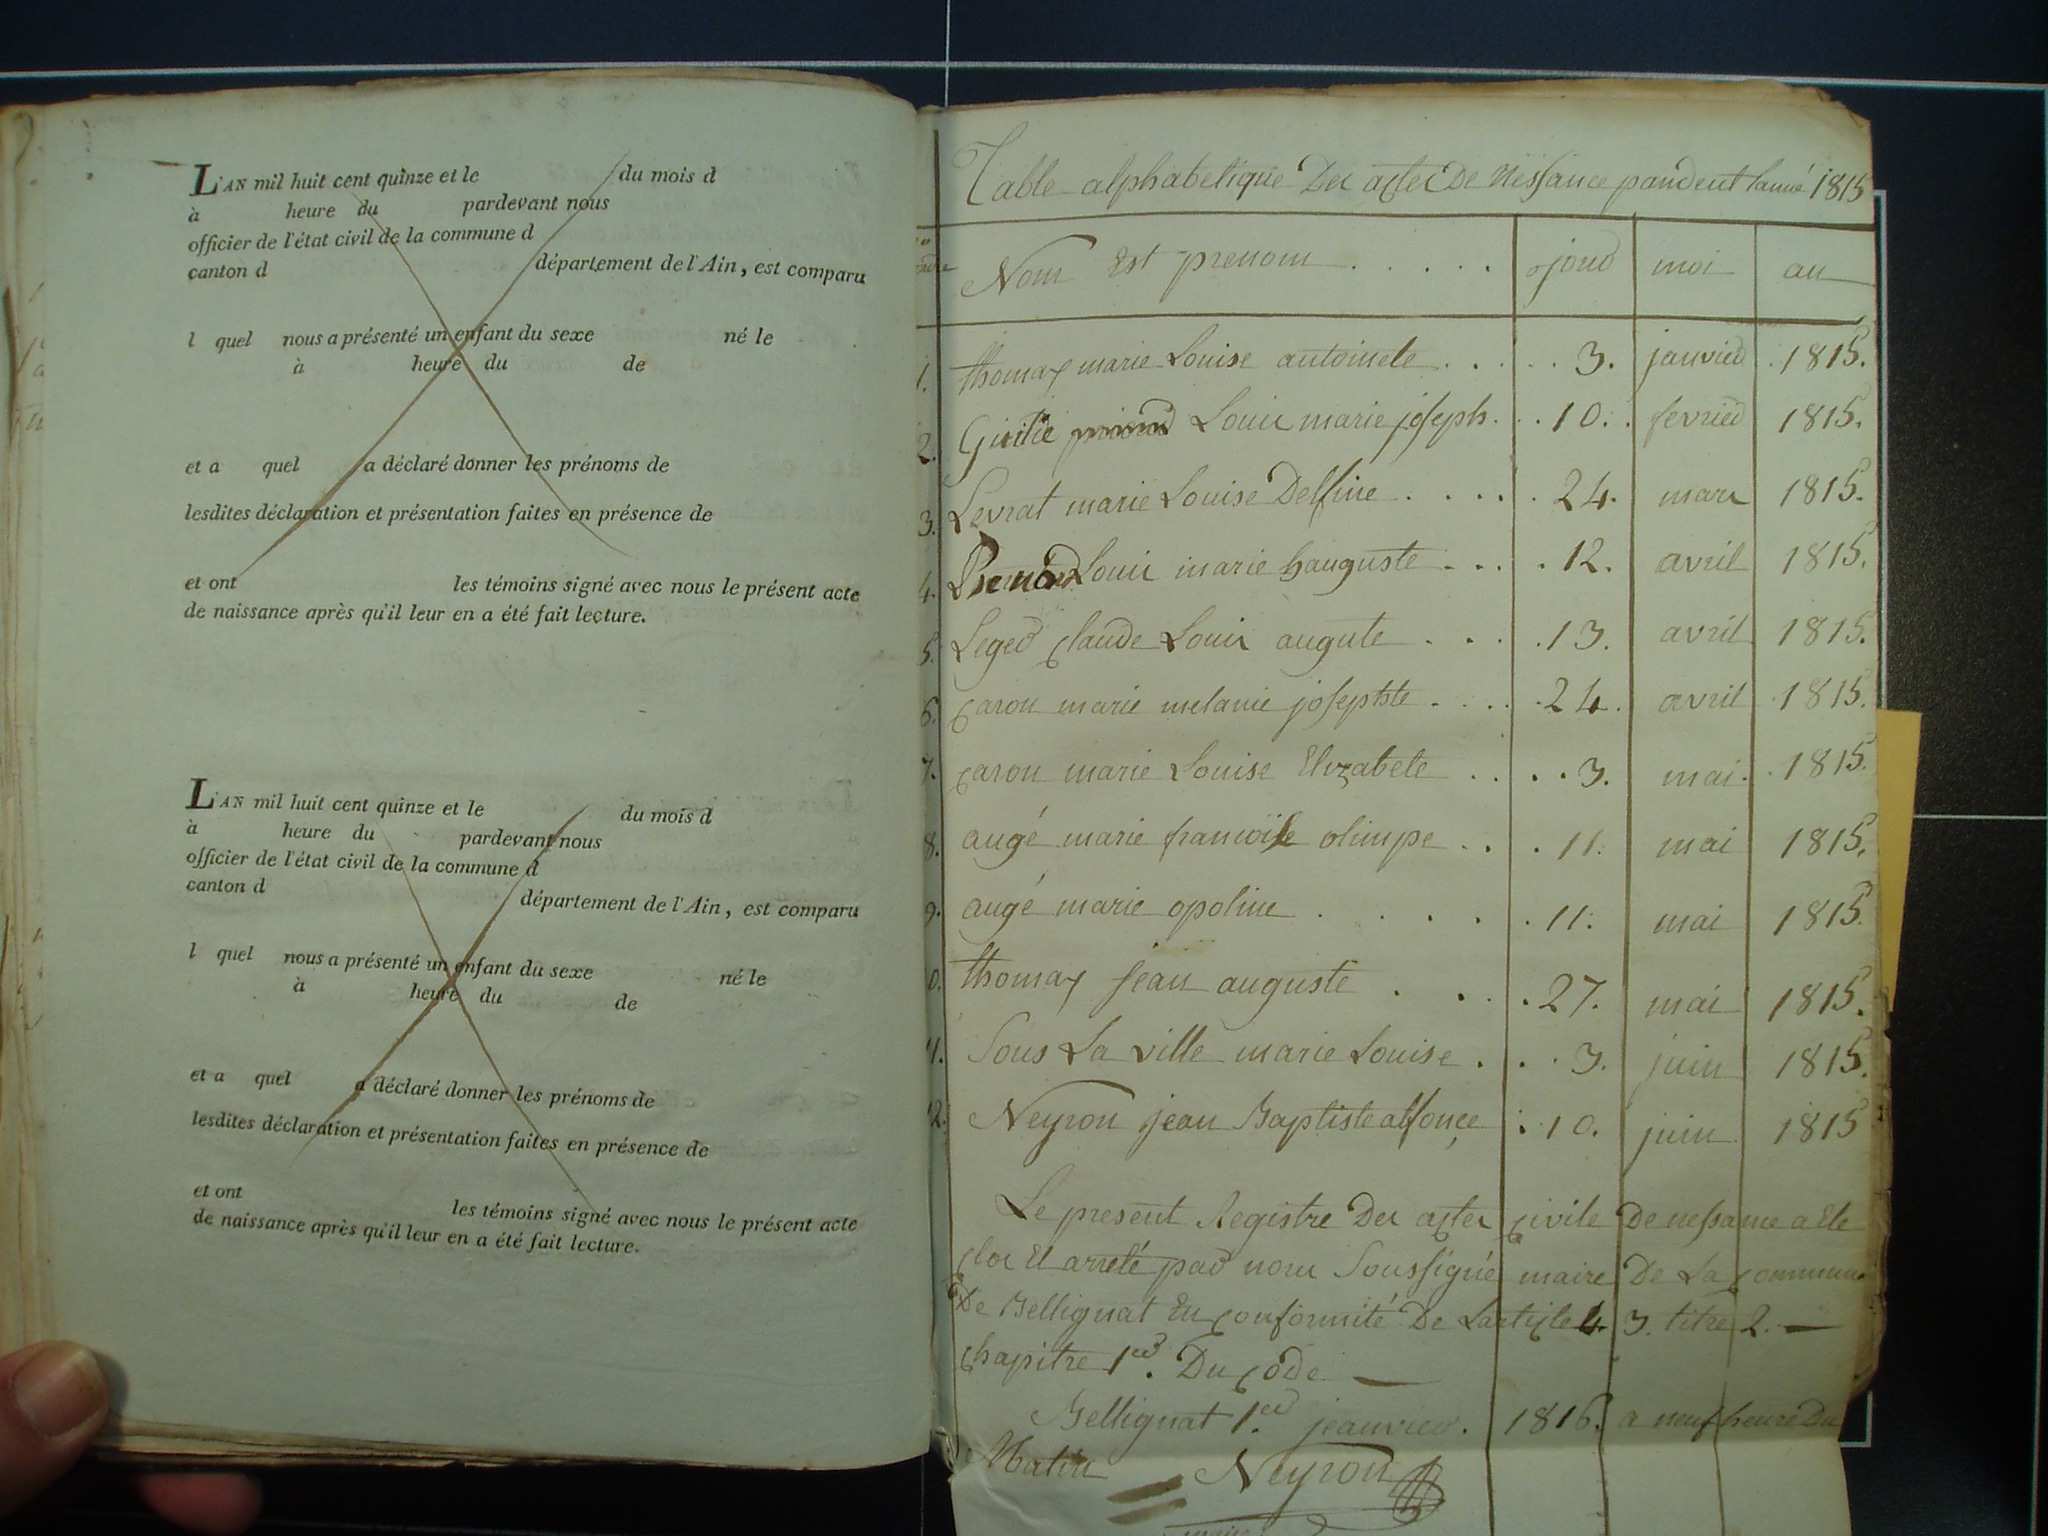 L'AN mil huit cent quinze et le du mois d
à heure du pardevant nous
officier de l'état civil de la commune d
canton d département de l'Ain, est comparu
l quel nous a présenté un enfant du sexe né le
à heure du de
et a quel a déclaré donner les prénoms de
lesdites déclaration et présentation faites en présence de
et ont les témoins signé avec nous le présent acte
de naissance après qu'il leur en a été fait lecture.
L'AN mil huit cent quinze et le du mois d
à heure du pardevant nous
officier de l'état civil de la commune d
canton d département de l'Ain, est comparu
l quel nous a présenté un enfant du sexe né le
à heure du de
et a quel a déclaré donner les prénoms de
lesdites déclaration et présentation faites en présence de
et ont les témoins signé avec nous le présent acte
de naissance après qu'il leur en a été fait lecture.
Table alphabetique Des actes De Nessance pandent lanné 1815
Nom Est prenom ..... jour moi an
1. thomas marie Louise antoinete ..... 3. janvier 1815.
2. Louis marie joseph... 10. fevrier 1815.
3. Levrat marie Louise Delfine ..... 24. mars 1815.
4. Louis marie hauguste .... 12. avril 1815.
5. Leger claude Louis augute .... 13. avril 1815.
6. caron marie melanie josephte ..... 24. avril 1815.
7. caron marie Louise Elizabete .... 3. mai. 1815.
8. augé marie francoise olimpe ... 11. mai 1815.
9. augé marie opoline ..... 11. mai 1815.
0. thomas jean auguste .... 27. mai 1815.
1. Sous La ville marie Louise ... 3. juin 1815.
2. Neyron jean Baptiste alfonce . 10. juin 1815
Le present Registre Des actes civile De nessance a Ete
clos Et arreté par nous Soussigné maire De La commune
De Bellignat En conformité De Larticle 4 3. titre 2.
chapitre 1er. Du code
Bellignat 1er. jeanvier. 1816. a neuf heure Du
Matin Neyron
maire